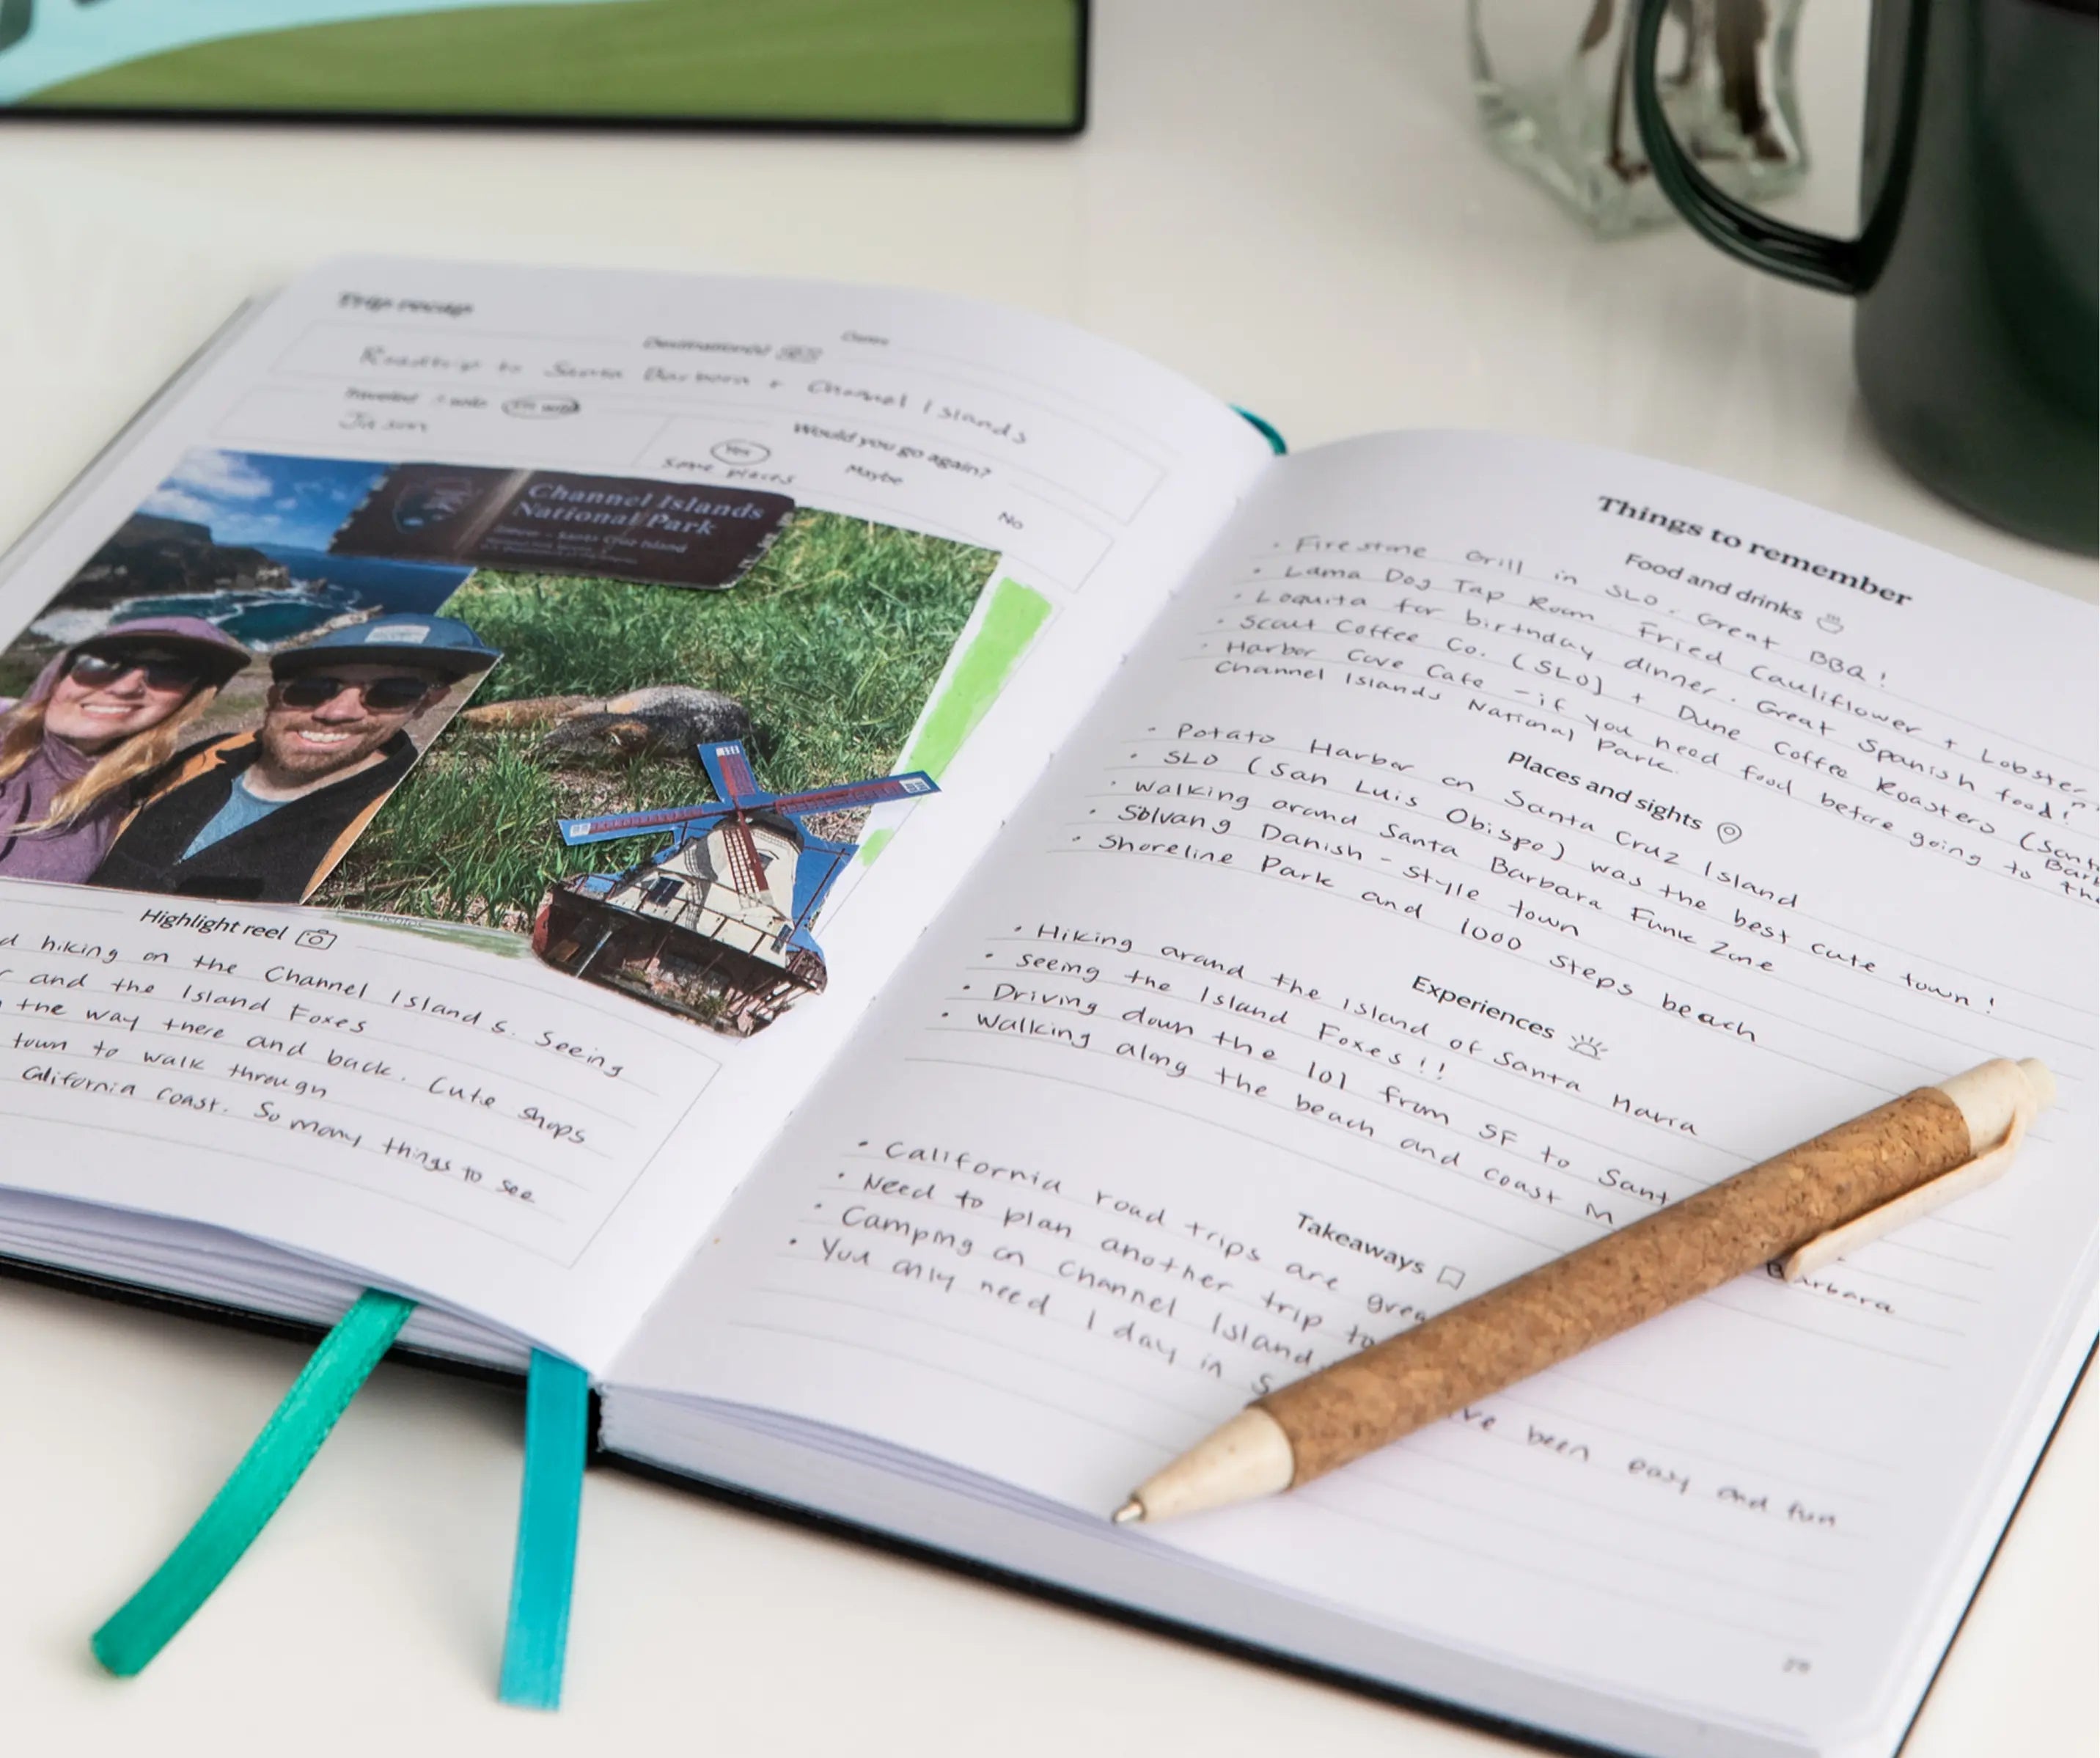 Trip recap
Destination(s)
Dates
Roadtrip to Santa Barbara + Channel Islands
Traveled
Jason
Would you go again?
Yes
Maybe
No
some places
Channel Islands
National Park
Santa Cruz Island
Highlight reel
hiking on the Channel Islands. Seeing
and the Island Foxes
the way there and back. Cute shops
town to walk through
California coast. So many things to see
Things to remember
Food and drinks
• Firestone Grill in SLO. Great BBQ!
• Lama Dog Tap Room Fried Cauliflower + Lobster
• Loquita for birthday dinner. Great Spanish food!
• Scout Coffee Co. (SLO) + Dune Coffee Roasters (Santa
Harbor Cove Cafe - if you need food before going to the
Channel Islands National Park.
Places and sights
• Potato Harbor on Santa Cruz Island
• SLO (San Luis Obispo) was the best cute town!
• Walking around Santa Barbara Funk Zone
• Solvang Danish-style town
• Shoreline Park and 1000 Steps beach
Experiences
• Hiking around the island of Santa Maria
• Seeing the Island Foxes!!
• Driving down the 101 from SF to Sant
Barbara
• Walking along the beach and coast
Takeaways
• California road trips are grea
• Need to plan another trip to
• Camping on Channel Island
ve been easy and fun
• You only need 1 day in S
29